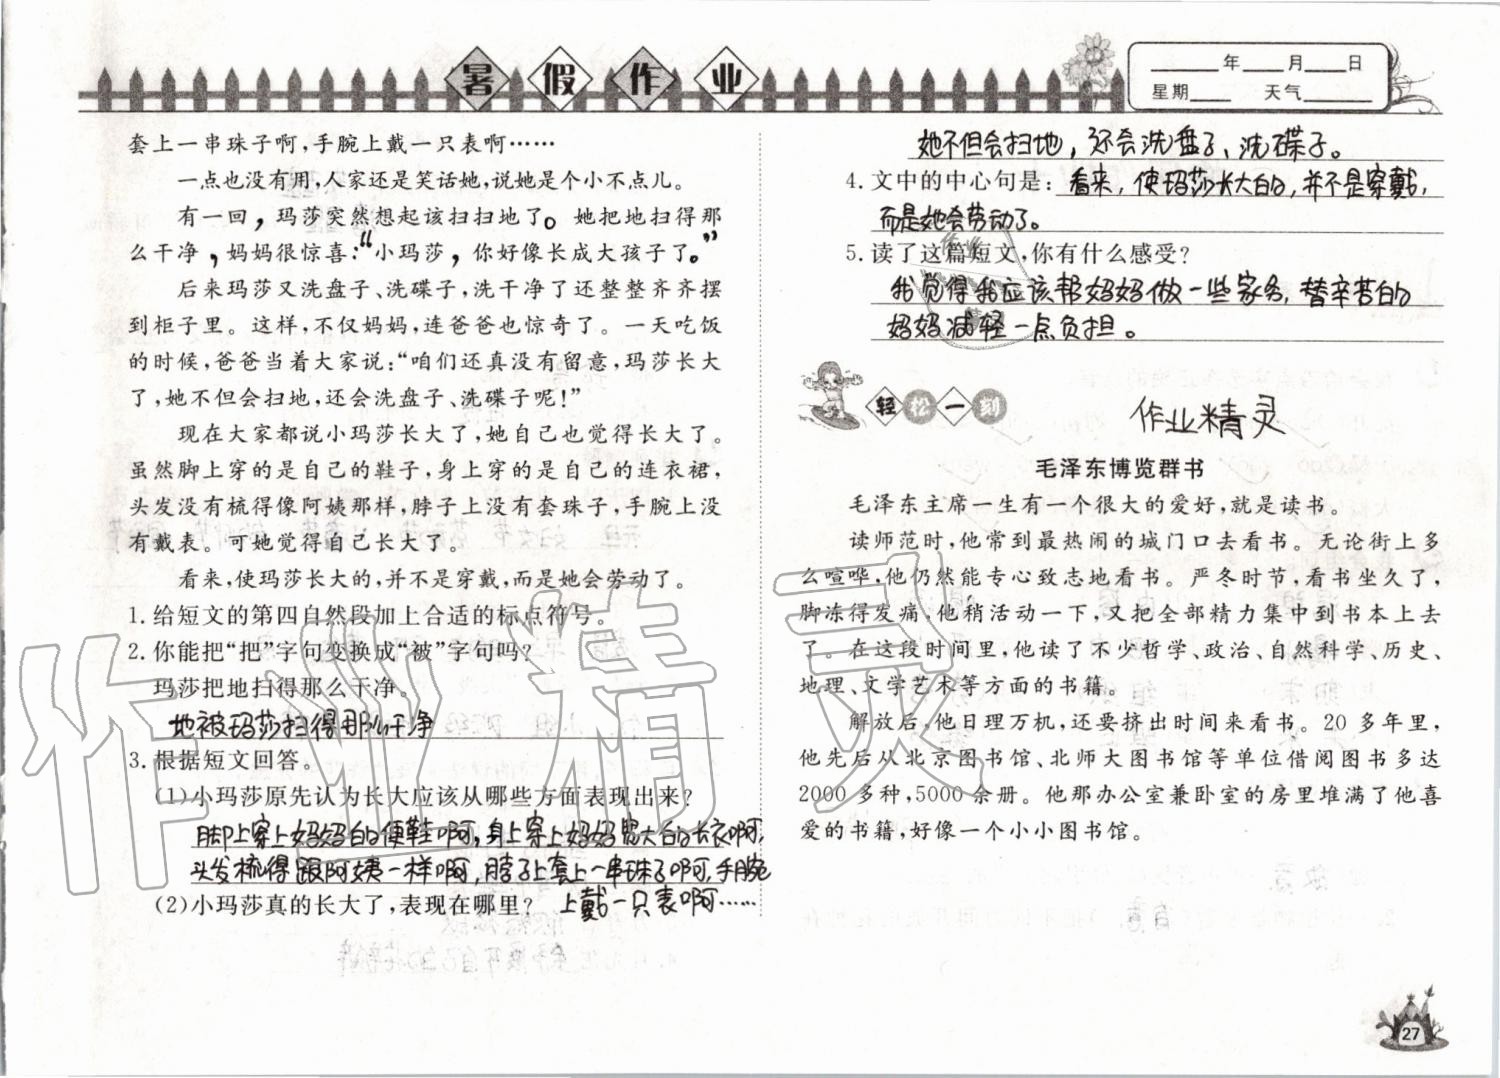 暑假作业
____年____月____日
星期____ 天气____
套上一串珠子啊,手腕上戴一只表啊……
一点也没有用,人家还是笑话她,说她是个小不点儿。
有一回,玛莎突然想起该扫扫地了。她把地扫得那
么干净,妈妈很惊喜:“小玛莎,你好像长成大孩子了。”
后来玛莎又洗盘子、洗碟子,洗干净了还整整齐齐摆
到柜子里。这样,不仅妈妈,连爸爸也惊奇了。一天吃饭
的时候,爸爸当着大家说:“咱们还真没有留意,玛莎长大
了,她不但会扫地,还会洗盘子、洗碟子呢!”
现在大家都说小玛莎长大了,她自己也觉得长大了。
虽然脚上穿的是自己的鞋子,身上穿的是自己的连衣裙,
头发没有梳得像阿姨那样,脖子上没有套珠子,手腕上没
有戴表。可她觉得自己长大了。
看来,使玛莎长大的,并不是穿戴,而是她会劳动了。
1. 给短文的第四自然段加上合适的标点符号。
2. 你能把“把”字句变换成“被”字句吗?
玛莎把地扫得那么干净。
地被玛莎扫得那么干净
3. 根据短文回答。
(1)小玛莎原先认为长大应该从哪些方面表现出来?
脚上穿上妈妈的便鞋啊,身上穿上妈妈宽大的长衣啊,
头发梳得跟阿姨一样啊,脖子上套上一串珠子啊,手腕
上戴一只表啊……
(2)小玛莎真的长大了,表现在哪里?
她不但会扫地,还会洗盘子、洗碟子。
4. 文中的中心句是: 看来,使玛莎长大的,并不是穿戴,
而是她会劳动了。
5. 读了这篇短文,你有什么感受?
我觉得我应该帮妈妈做一些家务,替辛苦的
妈妈减轻一点负担。
轻松一刻
作业精灵
毛泽东博览群书
毛泽东主席一生有一个很大的爱好,就是读书。
读师范时,他常到最热闹的城门口去看书。无论街上多
么喧哗,他仍然能专心致志地看书。严冬时节,看书坐久了,
脚冻得发痛,他稍活动一下,又把全部精力集中到书本上去
了。在这段时间里,他读了不少哲学、政治、自然科学、历史、
地理、文学艺术等方面的书籍。
解放后,他日理万机,还要挤出时间来看书。20 多年里,
他先后从北京图书馆、北师大图书馆等单位借阅图书多达
2000 多种,5000 余册。他那办公室兼卧室的房里堆满了他喜
爱的书籍,好像一个小小图书馆。
作业精灵
27